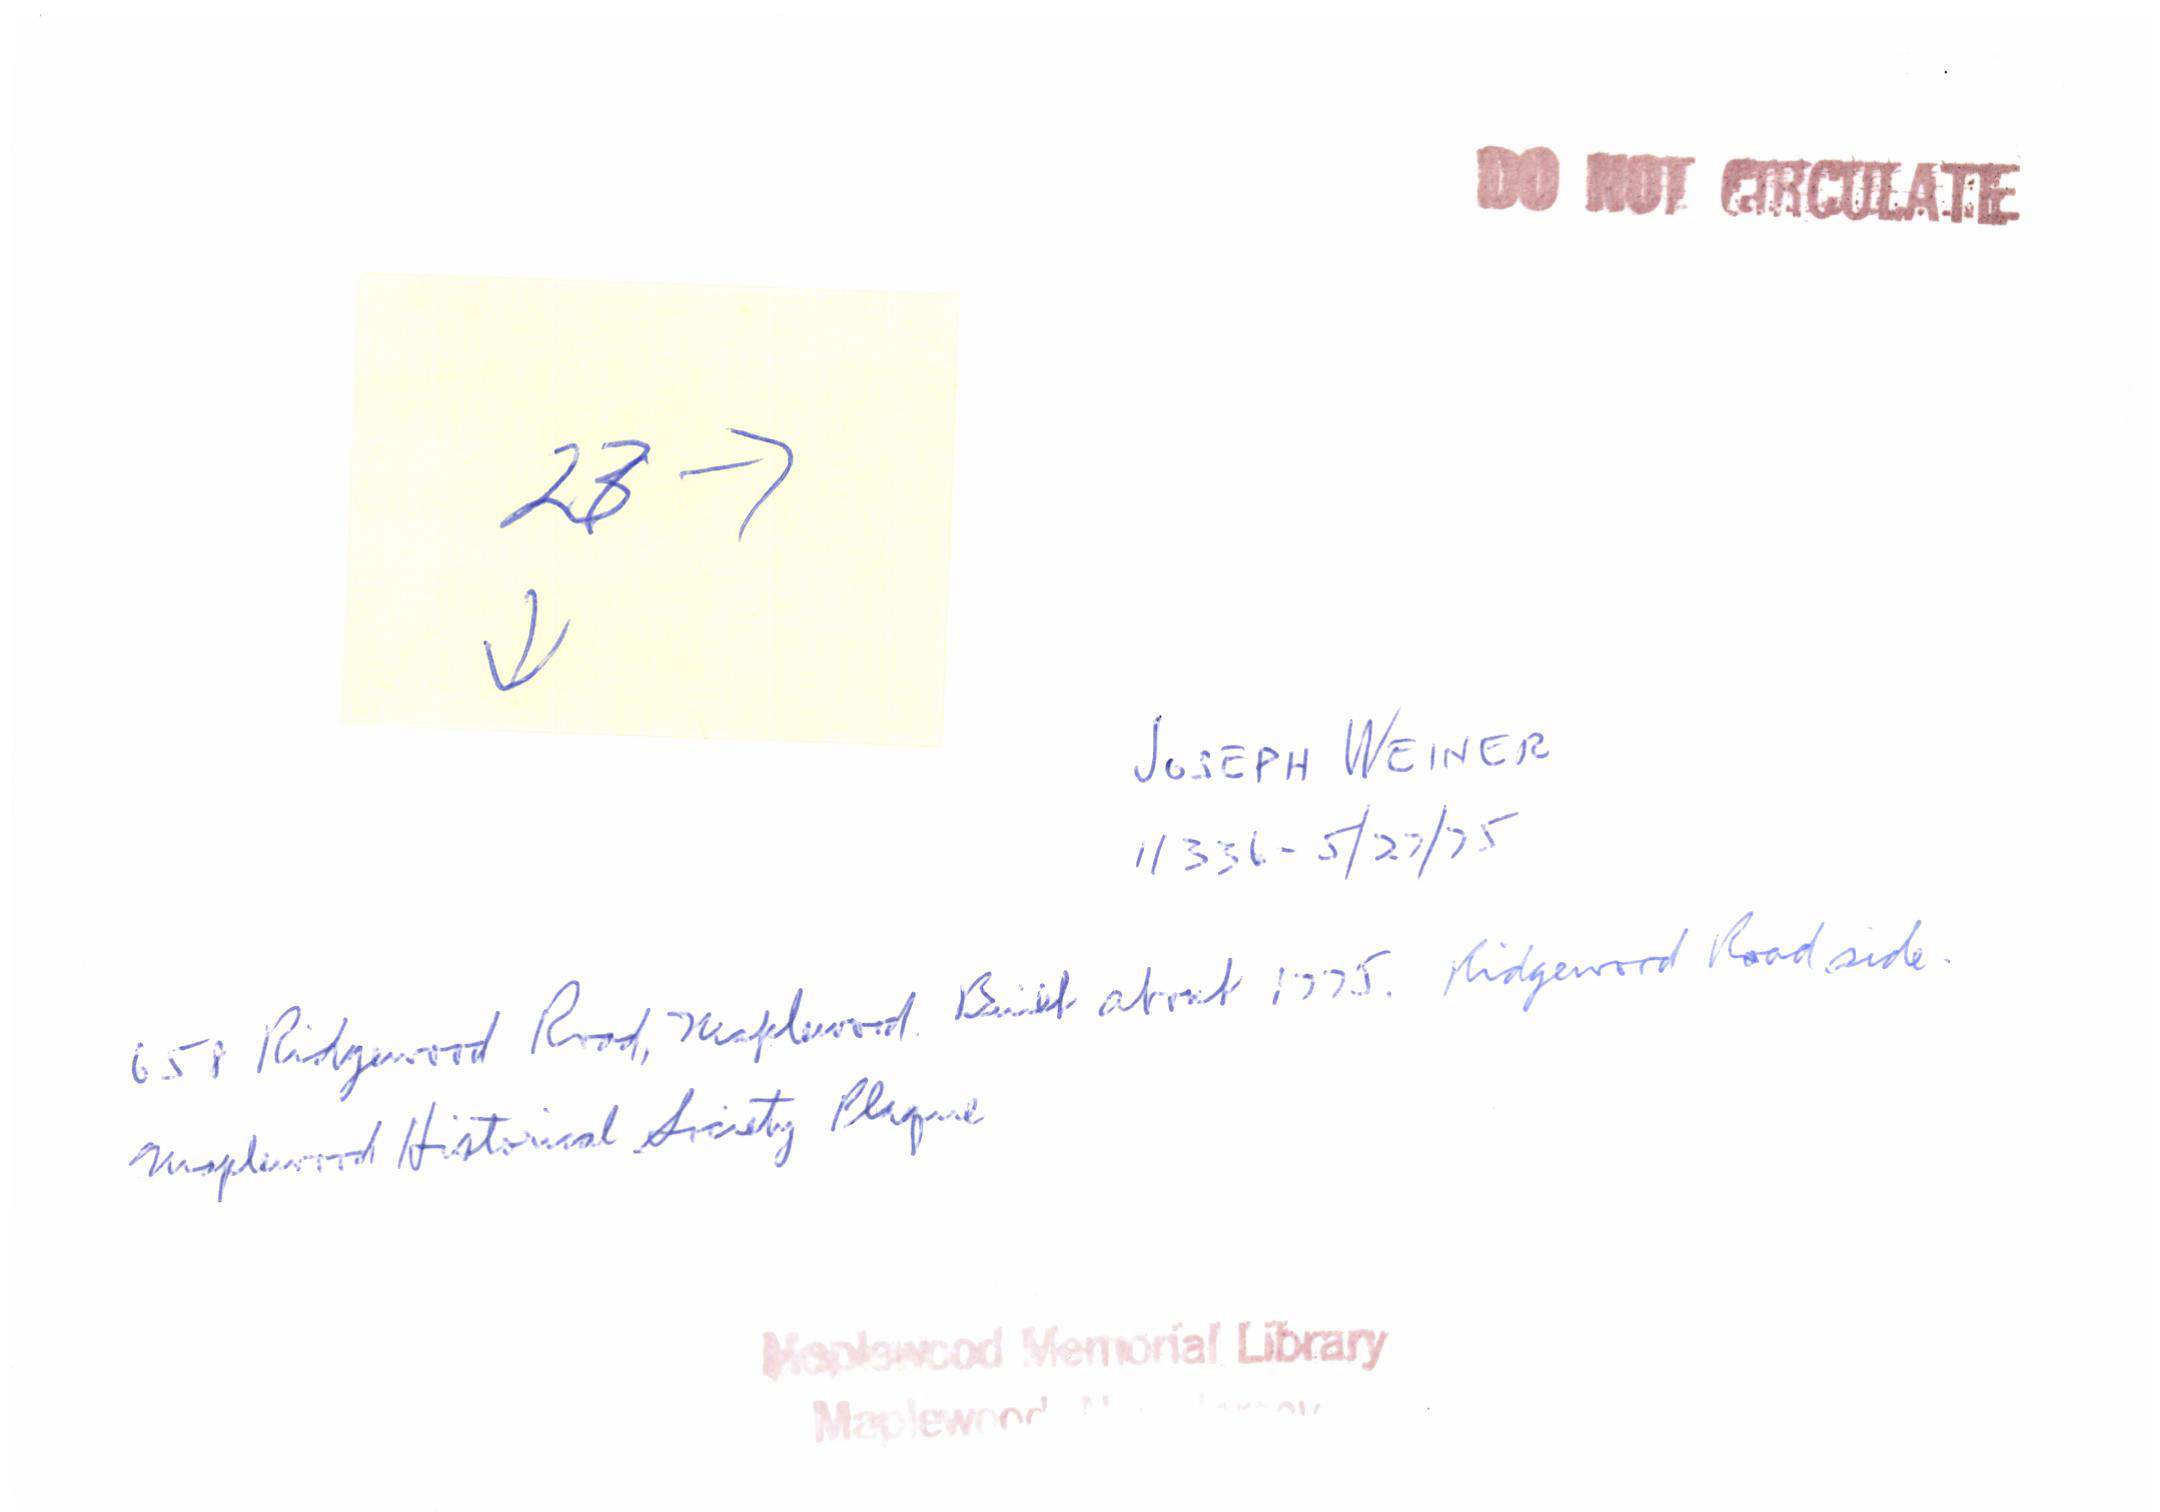 DO NOT CIRCULATE
28 →
↓
JOSEPH WEINER
11336 - 5/27/75
658 Ridgewood Road, Maplewood. Built about 1775. Ridgewood Road side.
Maplewood Historical Society Plaque
Maplewood Memorial Library
Maplewood